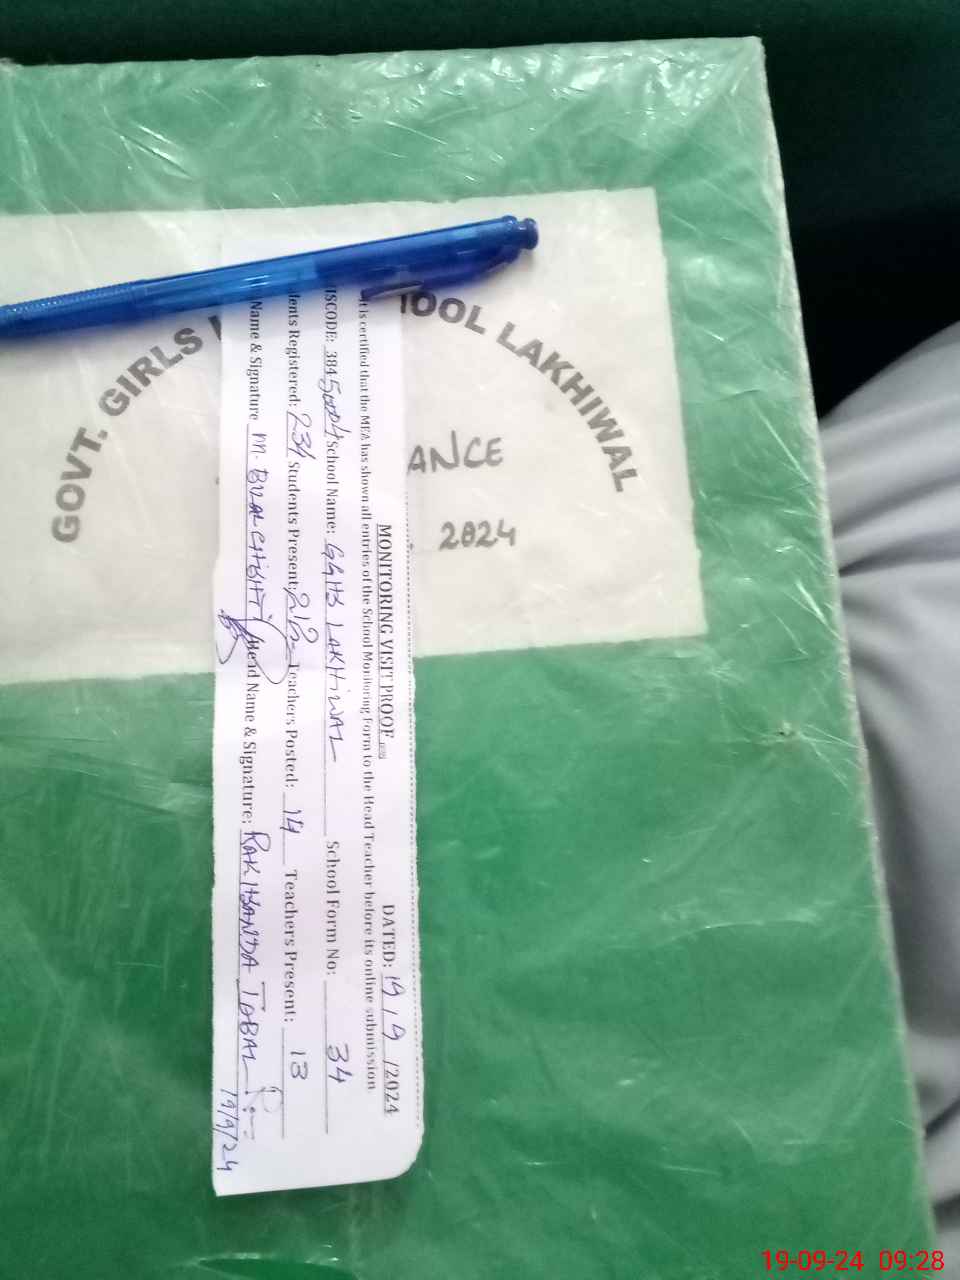 GOVT. GIRLS HOOL LAKHIWAL
ANCE
2024
MONITORING VISIT PROOF DATED: 19/9/2024
It is certified that the MEA has shown all entries of the School Monitoring Form to the Head Teacher before its online submission
ISCODE: 384 School Name: GGHS LAKHIWAL School Form No: 34
dents Registered: 234 Students Present: 212 Teachers Posted: 14 Teachers Present: 13
Name & Signature M. BILAL CHISHTI Head Name & Signature: RAKHSANDA IQBAL
19/9/24
19-09-24 09:28